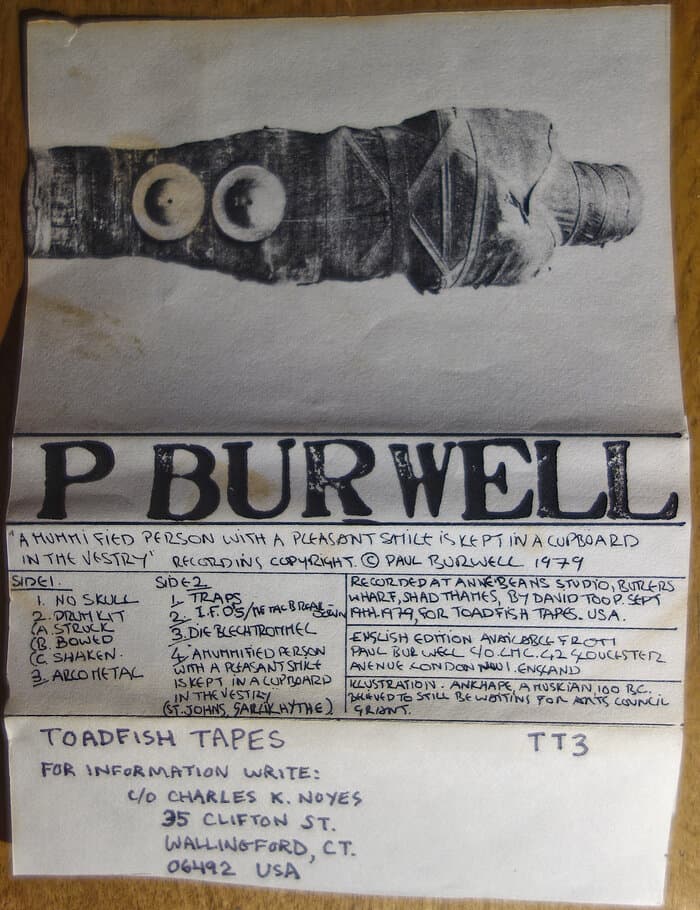 P BURWELL
"A MUMMIFIED PERSON WITH A PLEASANT SMILE IS KEPT IN A CUPBOARD
IN THE VESTRY" RECORDING COPYRIGHT. © PAUL BURWELL 1979
SIDE 1.
1. NO SKULL
2. DRUM KIT
(A. STRUCK
(B. BOWED
(C. SHAKEN.
3. ARCO METAL
SIDE 2
1. TRAPS
2. I.F. 05/METAL BREAK-DOWN
3. DIE BLECHTROMMEL
4. A MUMMIFIED PERSON
WITH A PLEASANT SMILE
IS KEPT IN A CUPBOARD
IN THE VESTRY
(ST. JOHNS, GARLIKHYTHE)
RECORDED AT ANNE BEANS STUDIO, BUTLERS
WHARF, SHAD THAMES, BY DAVID TOOP. SEPT
19TH. 1979, FOR TOADFISH TAPES. USA.
ENGLISH EDITION AVAILABLE FROM
PAUL BURWELL C/O. LMC. 42 GLOUCESTER
AVENUE LONDON NW1. ENGLAND
ILLUSTRATION. ANKHAPE, A MUSICIAN, 100 BC.
BELEVED TO STILL BE WAITING FOR ARTS COUNCIL
GRANT.
TOADFISH TAPES TT3
FOR INFORMATION WRITE:
C/O CHARLES K. NOYES
35 CLIFTON ST.
WALLINGFORD, CT.
06492 USA